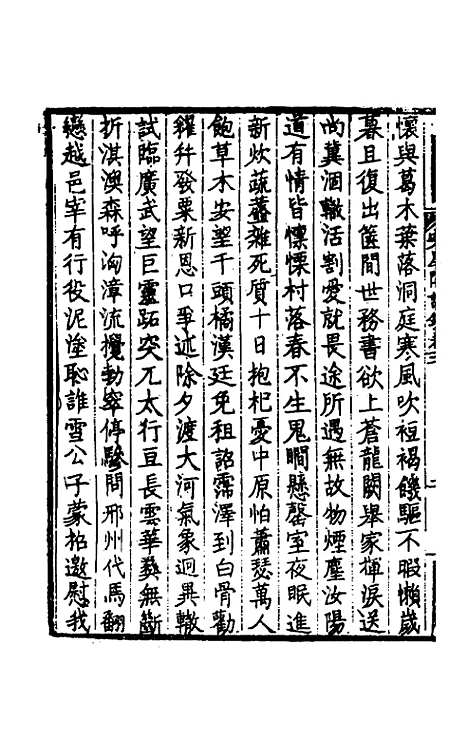 懷與葛木葉落洞庭寒風吹裋褐饑驅不暇懶歲
暮且復出篋間世務書欲上蒼龍闕舉家揮淚送
尚冀涸轍活割愛就畏途所遇無故物煙塵汝陽
道有情皆懍慄村落春不生鬼瞷懸罄室夜眠進
新炊蔬虀雜死質十日抱杞憂中原怕蕭瑟萬人
飽草木安望千頭橘漢廷免租詔霈澤到白骨勸
糴幷發粟新恩口爭述除夕渡大河氣象迥異轍
試臨廣武望巨靈跖突兀太行亘長雲華薿無斷
折淇澳森呼洶漳流攪動窣停驂問邢州代馬翻
戀越邑宰有行役泥塗恥誰雪公子蒙袥邀慰我